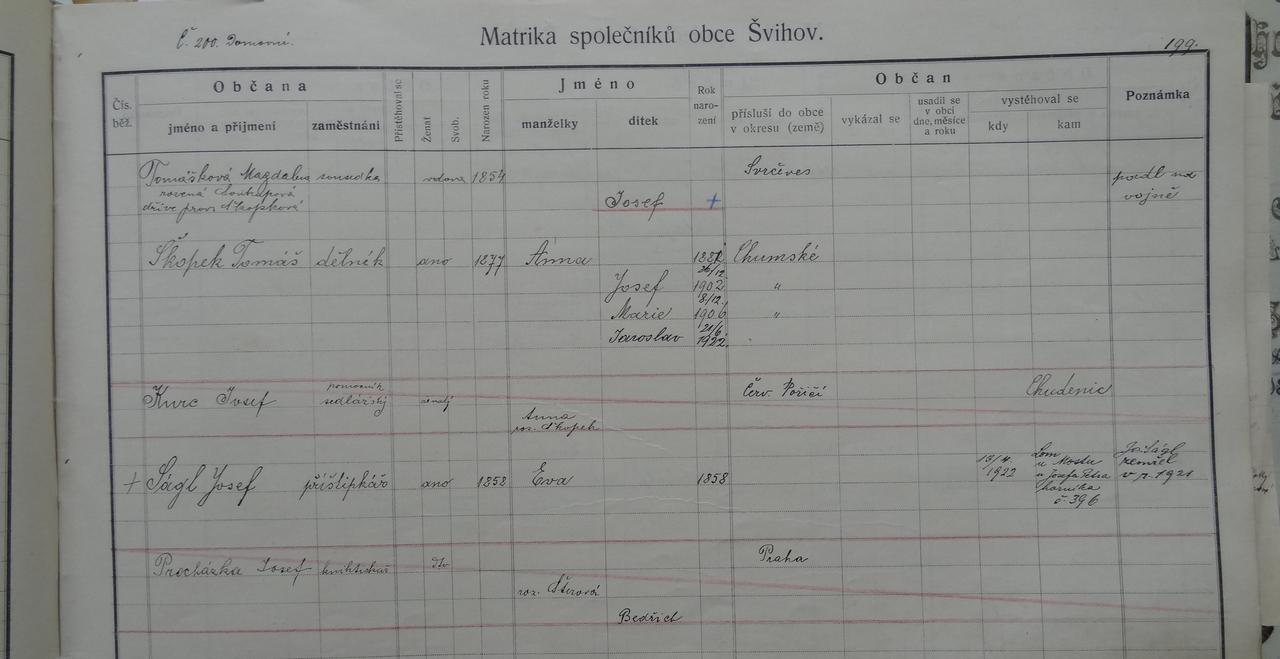 Č 200. Domovní.
Matrika společníků obce Švihov.
199.
Čís. běž.
Občana
jméno a příjmení
zaměstnání
Přistěhoval se
Ženat
Svob.
Narozen roku
Jméno
manželky
dítek
Rok naro- zení
Občan
přísluší do obce v okresu (země)
vykázal se
usadil se v obci dne, měsíce a roku
vystěhoval se
kdy
kam
Poznámka
Tomášková Magdalena sousedka vdova 1854 Svrčoves padl na
rozená
dříve prov. Škopková Josef + vojně
Škopek Tomáš dělník ano 1877 Anna 1881 Chumské
26/12
Josef 1902 "
8/12.
Marie 1906 "
21/6
Jaroslav 1922.
pomocník
Kurc Josef sedlářský ženatý Červ. Poříčí Chudenic
Anna
roz. Škopek
13/4. Lom Jos. Ságl
1922 u Mostu zemřel
+ Ságl Josef příštipkář ano 1858 Eva 1858 u Josefa Petra v r. 1921
horníka
č. 396
Procházka Josef knihtiskař dto Praha
roz.
Bedřich